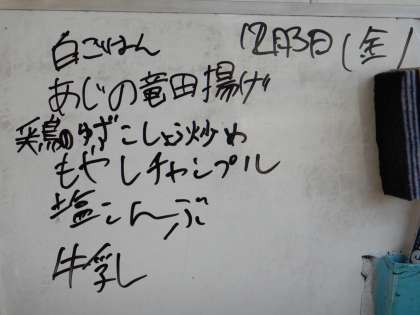 12月3日(金)
白ごはん
あじの竜田揚げ
鶏のゆずこしょう炒め
もやしチャンプル
塩こんぶ
牛乳